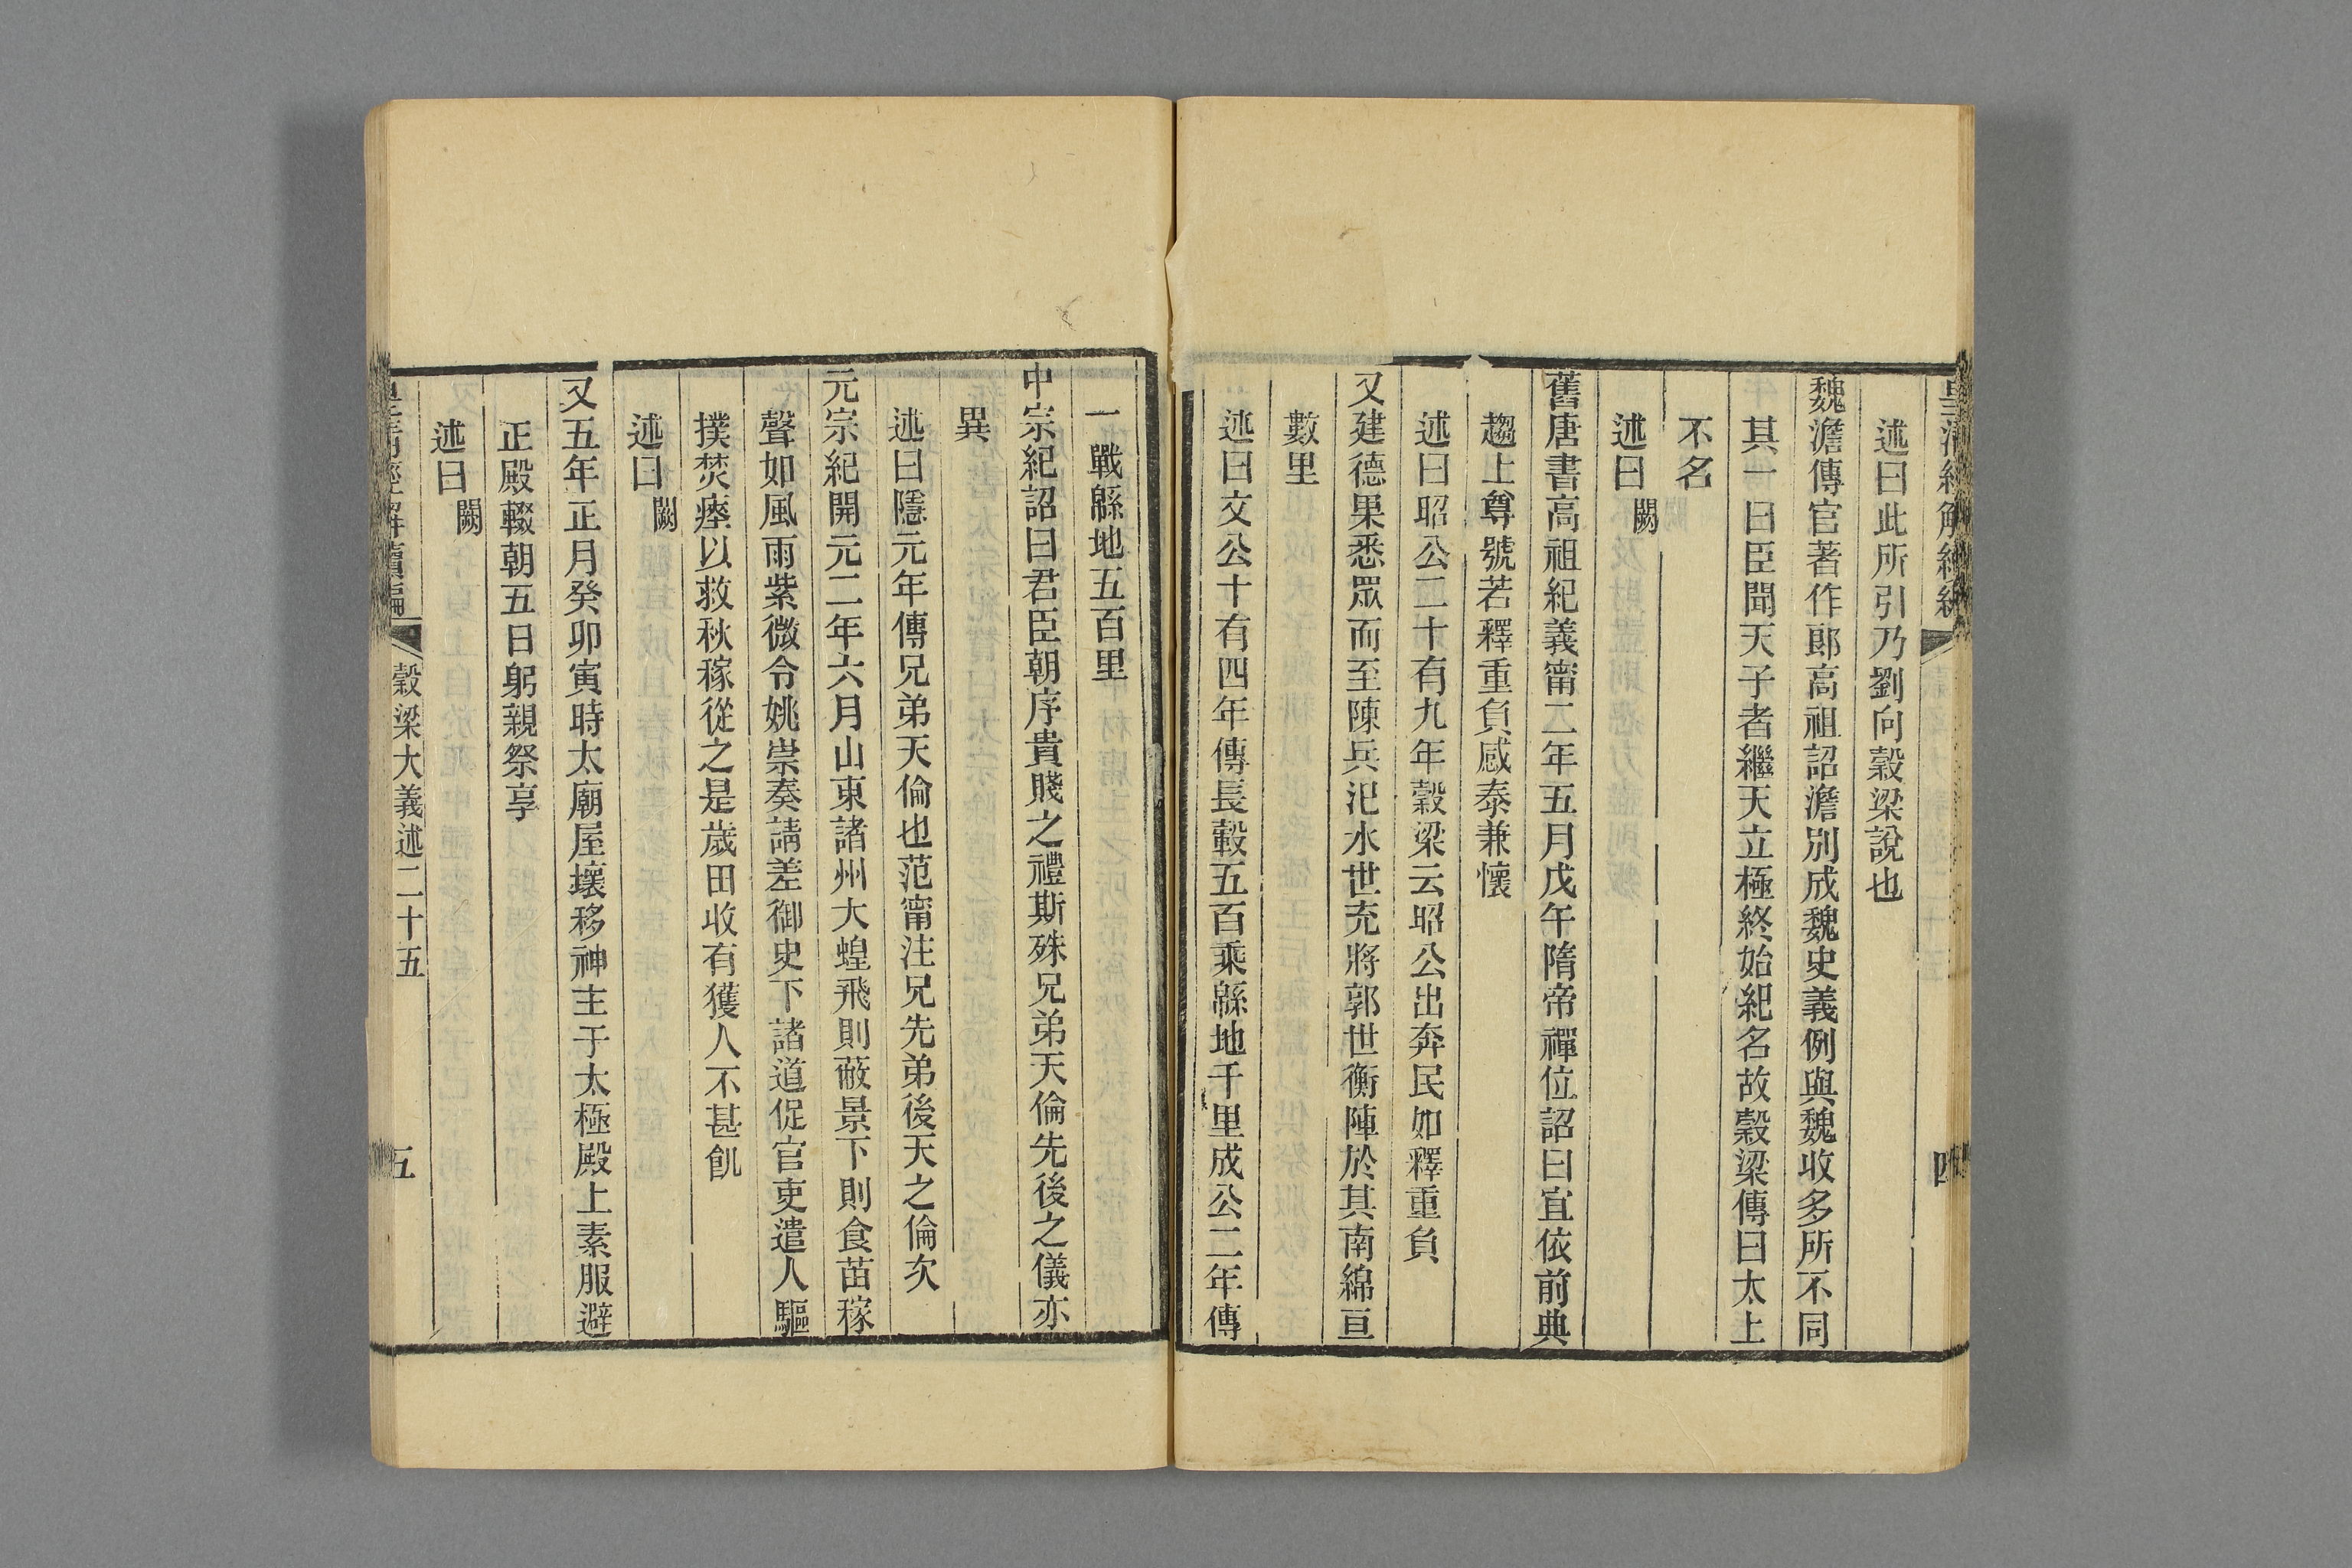 四
述曰此所引乃劉向穀梁說也
魏澹傳官著作郎高祖詔澹別成魏史義例與魏收多所不同
其一曰臣聞天子者繼天立極終始紀名故穀梁傳曰太上
不名
述曰闕
舊唐書高祖紀義甯二年五月戊午隋帝禪位詔曰宜依前典
趨上尊號若釋重負感泰兼懷
述曰昭公二十有九年穀梁云昭公出奔民如釋重負
又建德果悉眾而至陳兵汜水世充將郭世衡陣於其南綿亘
數里
述曰文公十有四年傳長轂五百乘緜地千里成公二年傳
一戰緜地五百里
中宗紀詔曰君臣朝序貴賤之禮斯殊兄弟天倫先後之儀亦
異
述曰隱元年傳兄弟天倫也范甯注兄先弟後天之倫次
元宗紀開元二年六月山東諸州大蝗飛則蔽景下則食苗稼
聲如風雨紫微令姚崇奏請差御史下諸道促官吏遣人驅
撲焚瘞以救秋稼從之是歲田收有獲人不甚飢
述曰闕
又五年正月癸卯寅時太廟屋壞移神主于太極殿上素服避
正殿輟朝五日躬親祭享
述曰闕
穀梁大義述二十五
五